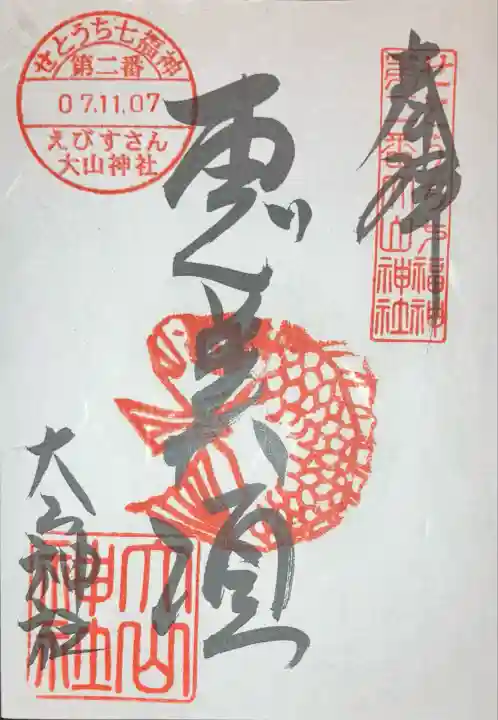 奉拝
せとうち七福神
第二番大山神社
恵美須
せとうち七福神
第二番
07.11.07
えびすさん
大山神社
大山神社
大山神社